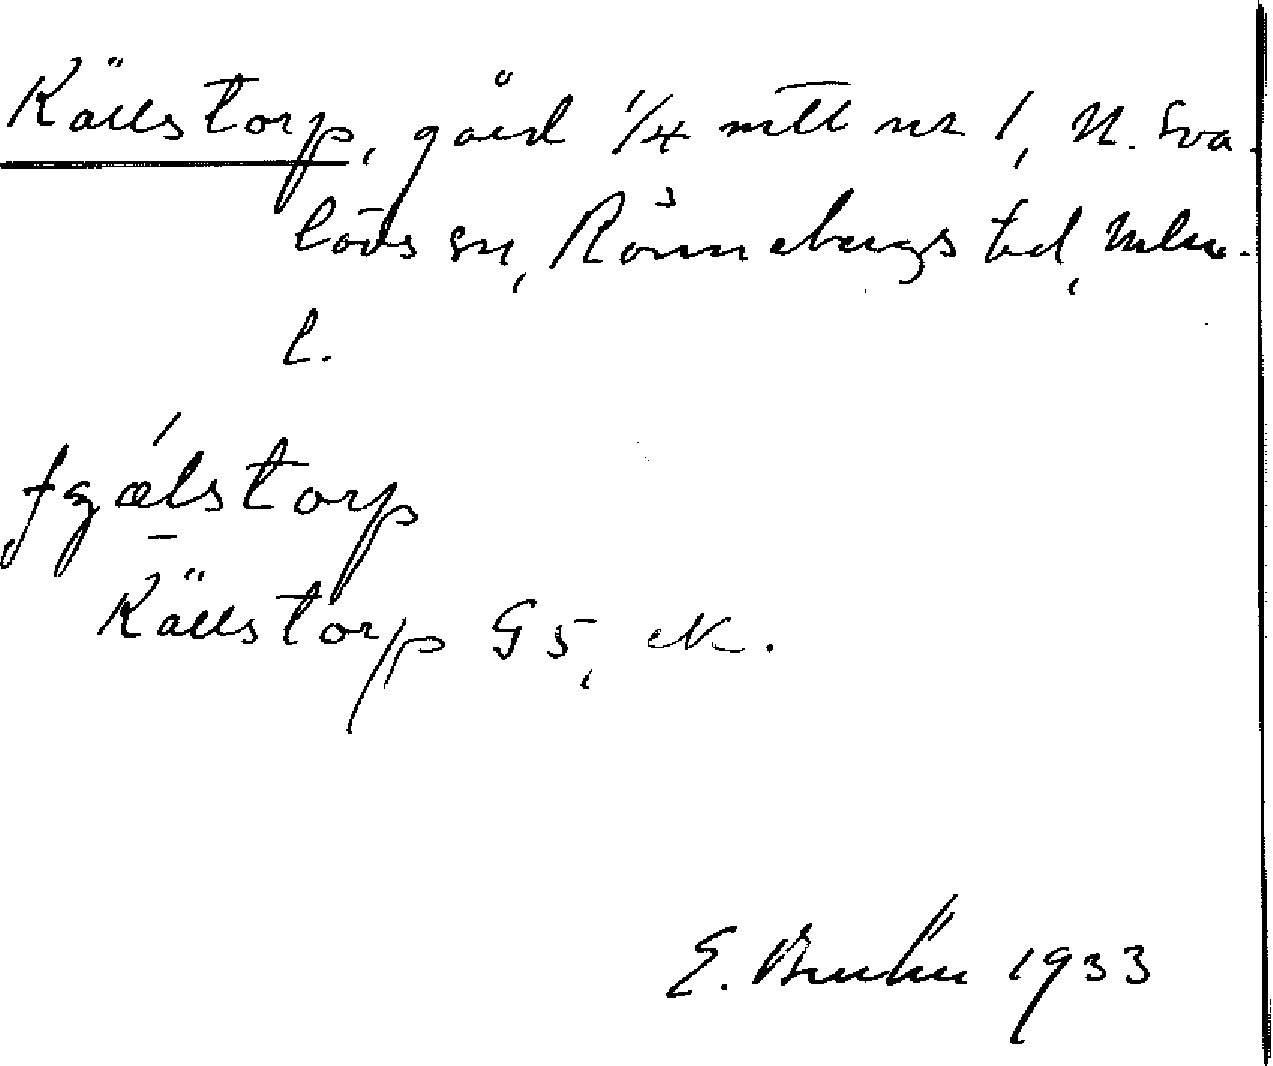 Källstorp, gård 1/4 mtl nr 1, N. Sva-
lövs sn, Rönnebergs hd, Mlm.
l.
Källstorp G5, ek.
E. Bruhn 1933